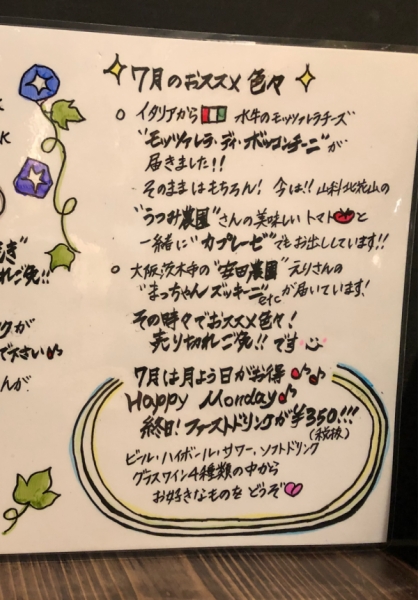 7月のおススメ色々
イタリアから 水牛のモッツァレラチーズ
"モッツァレラ・ディ・ボッコンチーニ"が
届きました!!
そのままはもちろん! 今は!! 山科北花山の
"うつみ農園"さんの美味しいトマトと
一緒に"カプレーゼ"でもお出ししています!!
大阪茨木市の"幸田農園"えりさんの
"まっちゃんズッキーニ"etcが届いています!
その時々でおススメ色々!
売り切れご免!!です
7月は月よう日がお得
Happy Monday♪
終日!ファーストドリンクが¥350!!!
(税抜)
ビール・ハイボール・サワー・ソフトドリンク
グラスワイン4種類の中から
お好きなものをどうぞ♡
K
K
き"
れご免!!
クが
下さい♪
んが